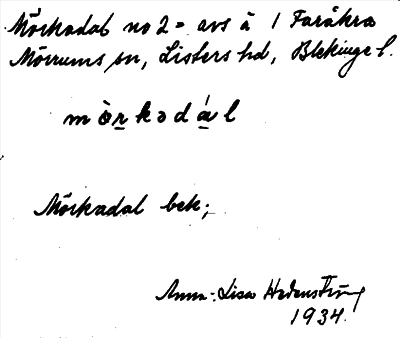 Mörkadal no 2 = avs å 1 Faråkra
Mörrums sn, Listers hd, Blekinge l.
mò̱ṟkədá̱l
Mörkadal bek;
Anna-Lisa Hedenström
1934.